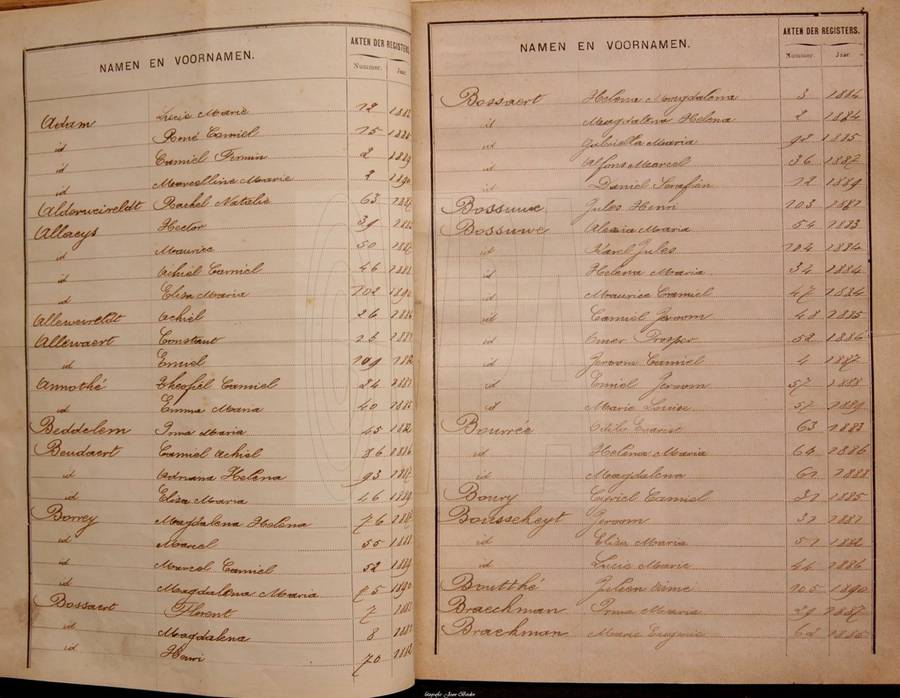 NAMEN EN VOORNAMEN. AKTEN DER REGISTERS
Nummer. Jaar.
Adam Lucie Marie 12
id René Camiel 15
id Camiel Firmin 2 1889
id Marcelline Marie 2 1890
Alderweireldt Rachel Natalie 63
Allaeys Hector 39
id Maurice 50
id Achiel Camiel 46
id Elisa Maria 102
Alleweireldt Achiel 26
Allewaert Constant 25
id Emiel 109
Annothé Theofiel Camiel 24
id Emma Maria 40
Beddelem Irma Maria 45
Beudaert Camiel Achiel 86 1886
id Adriana Helena 93
id Elisa Maria 46 1889
Borrey Magdalena Helena 76
id Marcel 55 1888
id Marcel Camiel 52 1889
id Magdalena Maria 75 1890
Bossaert Florent 7
id Magdalena 8
id Henri 70 1882
NAMEN EN VOORNAMEN. AKTEN DER REGISTERS.
Nummer. Jaar.
Bossaert Helena Magdalena 3 1884
id Magdalena Helena 2 1884
id Gabriella Maria 92 1885
id Alfons Marcel 36 1887
id Daniel Serafien 12 1889
Bossuwe Jules Henri 103 1881
Bossuwe Alexia Maria 54 1883
id Karel Jules 104 1884
id Helena Maria 34 1884
id Maurice Camiel 47 1884
id Camiel Jeroom 48 1885
id Omer Prosper 52 1886
id Jeroom Camiel 4 1887
id Emiel Jeroom 57 1888
id Marie Louise 57 1889
Bourrée Odilie Evarist 63 1883
id Helena Maria 64 1886
id Magdalena 61 1888
Boury Cyriel Camiel 31 1885
Bousscheyt Jeroom 31 1881
id Elisa Maria 51 1882
id Lucie Marie 44 1886
Boutthé Julien Aimé 105 1890
Braeckman Irma Maria 29 1887
Brackman Marie Eugenie 62 1885